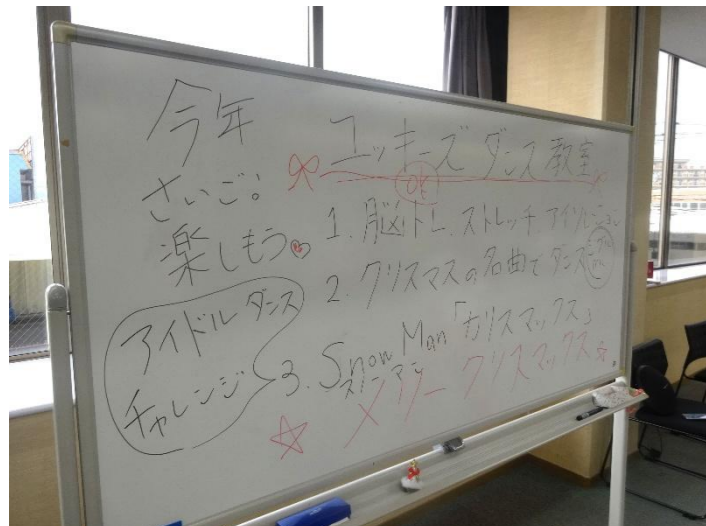 今年
さいご!
楽しもう
ユッキーズ ダンス 教室
OK
1. 脳トレ、ストレッチ、アイソレーション
2. クリスマスの名曲でダンス
アイドル ダンス
チャレンジ
3. Snow Man 「カリスマックス」
スノーマン
メリー クリスマックス☆。